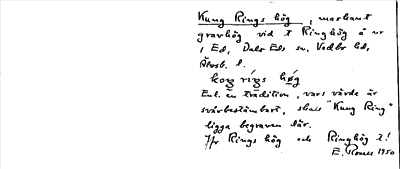 Kung Rings hög, markant
gravhög vid t Ringhög å nr
1 Ed, Dals Eds sn. Vedbo hd,
Älvsb. l.
hög
Enl. en tradition, vars värde är
svårbestämbart, skall "Kung Ring"
ligga begraven där.
Jfr Rings hög och Ringhög t!
E. 1950